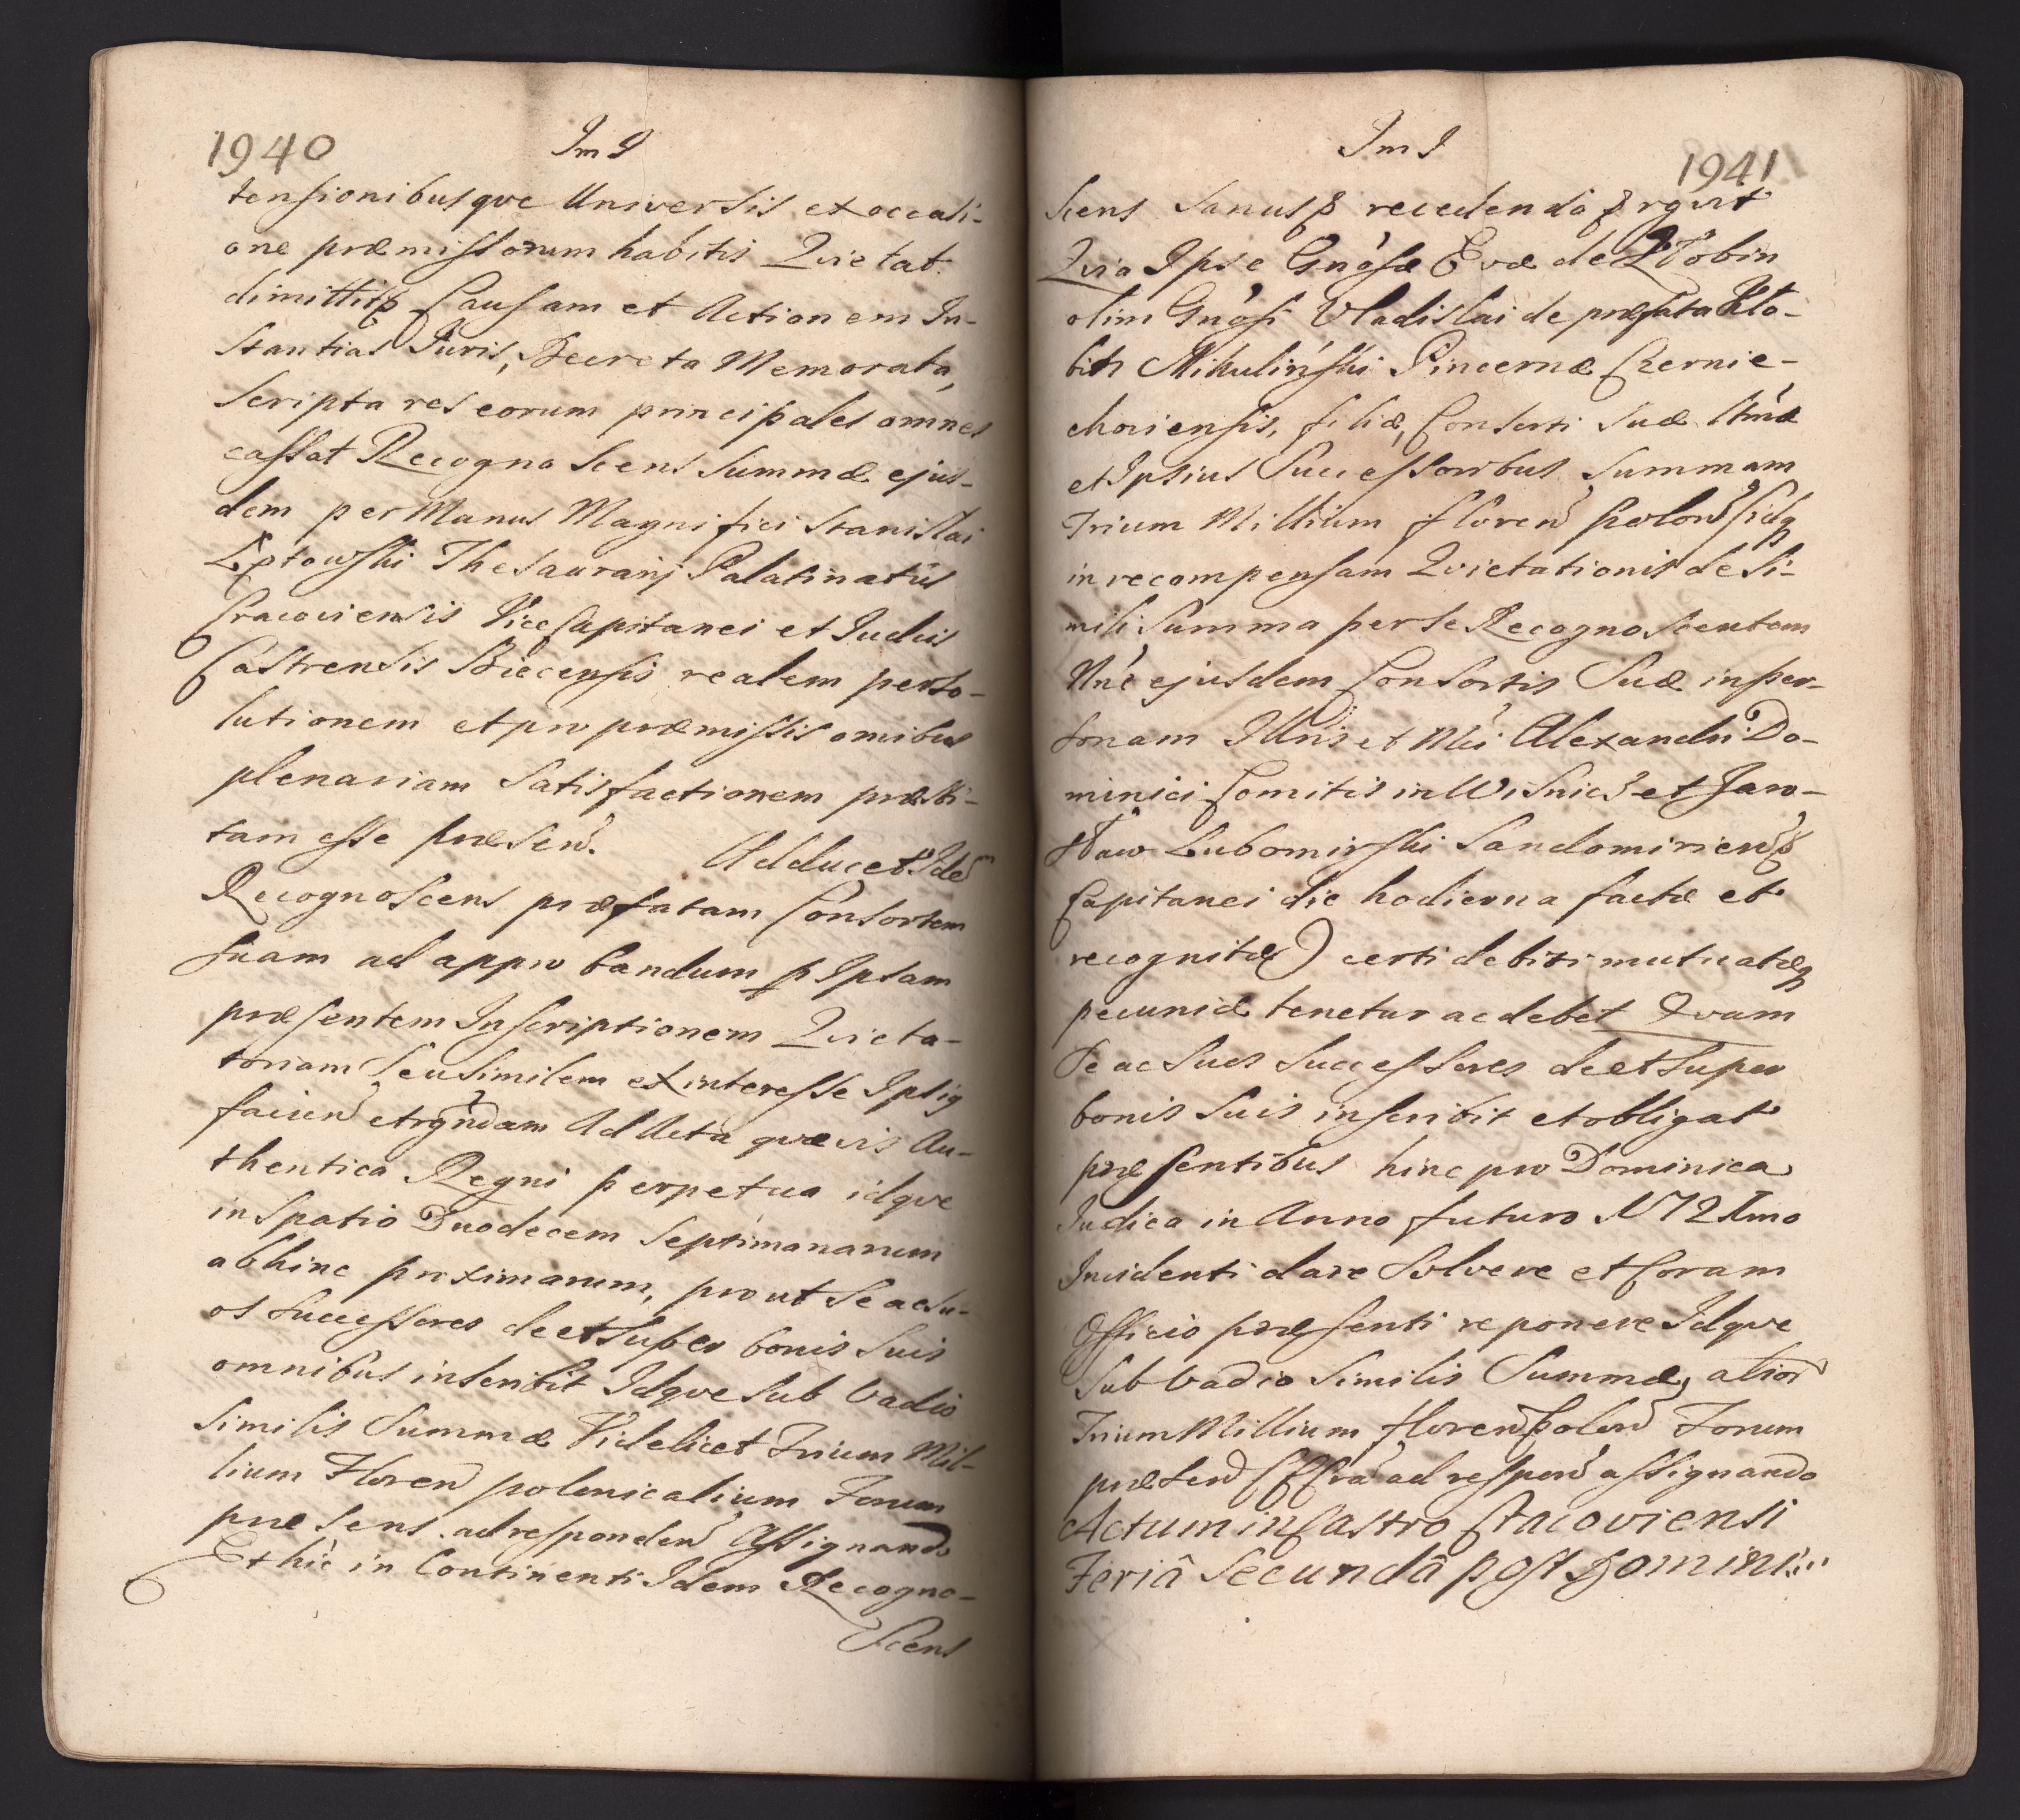 1940
Im I
tensionibusqve Universis ex occasi-
one præmissorum habitis Qvietat
dimittitq Causam et Actionem In-
stantias Juris, Decreta Memorata,
Scripta res eorum principales omnes
cassat Recognoscens Summæ ejus-
dem per Manus Magnifici Stanislai
Łętowski Thesaurarij Palatinatûs
Cracoviensis ViceCapitanei et Judicis
Castrensis Biecensis realem perso-
lutionem et pro præmissis omibus
plenariam Satisfactionem præsti-
tam esse præsen. Adducet Idem
Recognoscens præfatam Consortem
suam ad approbandum p Ipsam
præsentem Inscriptionem Qvieta-
toriam Seu Similem ex interesse Ipsiq
facien et rgndam Ad Acta qvævis Au-
thentica Regni perpetua idqve
in Spatio Duodecem Septimanarum
abhinc proximarum, prout Se ac Su-
os Successores de et Super bonis Suis
omnibus inscribit Idqve Sub Vadio
Similis Summæ Videlicet Trium Mil-
lium Floren polonicalium Forum
præsens ad responden Assignando
Et hic in Continenti Idem Recogno-
Scens
Im I
1941
Scens Sanusq recedendo q rgvit
Qvia Ipse Gnosæ Evæ de Kłobin
olim Gnosi Vladislai de præfata Kło-
bin Mikulinski Pincernæ Czernie-
choviensis, filiæ, Consorti Suæ Amæ
et Ipsius Successoribus Summam
Trium Millium floren polon (idq
in recompensam Qvietationis de Si-
mili Summa per Se Recognoscentem
Nne ejusdem Consortis Suæ in per-
sonam Illris et Mci Alexandri Do-
minici Comitis in Wisnic et Jaro-
sław Lubomirski Sandomirien
Capitanei die hodierna factæ et
recognitæ) certi debiti mutuatæq
pecuniæ tenetur ac debet Qvam
Se ac Suos Successores de et Super
bonis Suis inscribit et obligat
præsentibus hinc pro Dominica
Judica in Anno futuro 1712 Imo
Incidenti dare Solvere et Coram
Officio præsenti reponere Idqve
Sub Vadio Similis Summæ, alior
Trium Millium floren polon Forum
præsen CCra ad respon assignando
Actum in Castro Cracoviensi
Feriâ Secundâ post Domini: